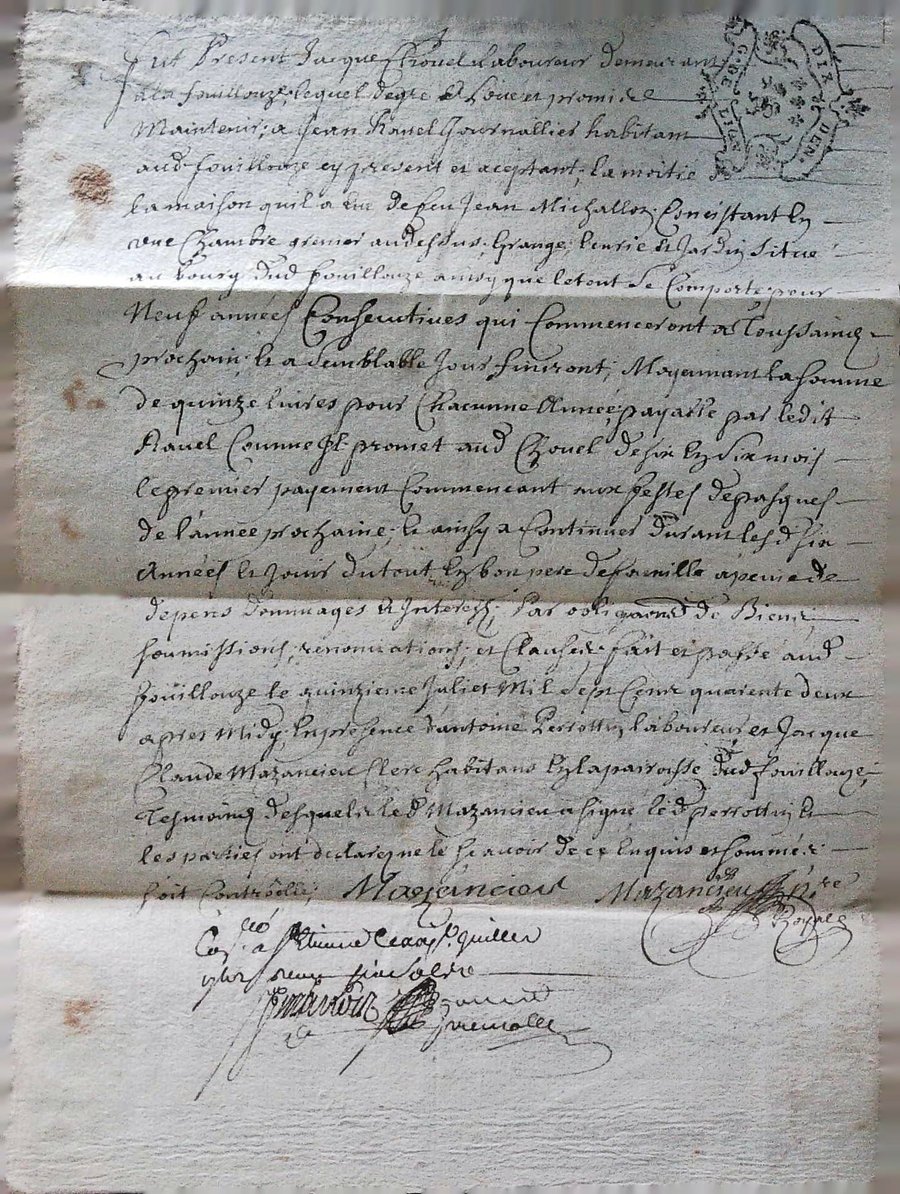 Fut Present Jacque Chovel Laboureur demeurant
a la fouillouze, lequel de gré a Loué et promis de
Maintenir, a Jean Ravel Journallier habitant
aud fouillouze cy present et aceptant, la moitié
La maison quil a de feu Jean Michallon Concistant En
une Chambre grenier au dessus, Grange, Ecurie et Jardin Situé
au bourg dud fouillouze ainsy que le tout Se Comporte, pour
Neuf années Consecutives qui Commenceront a Toussaind
prochain, et a Semblable Jour finiront, Moyennant La Somme
de quinze livres pour Chacunne Année, payable par ledit
Ravel Comme Il promet aud Chovel de Six En Six mois
le premier payement Commencant aux festes de pasques
de l'année prochaine, et ainsy a Continuer durant lesd
Années et Jouir du tout En bon pere de famille a peine de
depens dommages et Interests, Par de Biens,
Soumissions, renonciations, et Clauses, fait et passé aud
fouillouze le quinzieme Juliet Mil Sept Cent quarente deux
apres Midy, En presence d'antoine Perrottin Laboureur, et Jacque
Claude Mazancieu Clerc habitans En la parroisse dud fouillouze,
Tesmoins desquels le d Mazancieu a signé, le d perrottin et
les parties ont declaré ne le scavoir de ce Enquis et Sommés
Soit Controllé, Mazancieu Mazancieu nre
Royal
a St Etienne
GEN
DIX DEN